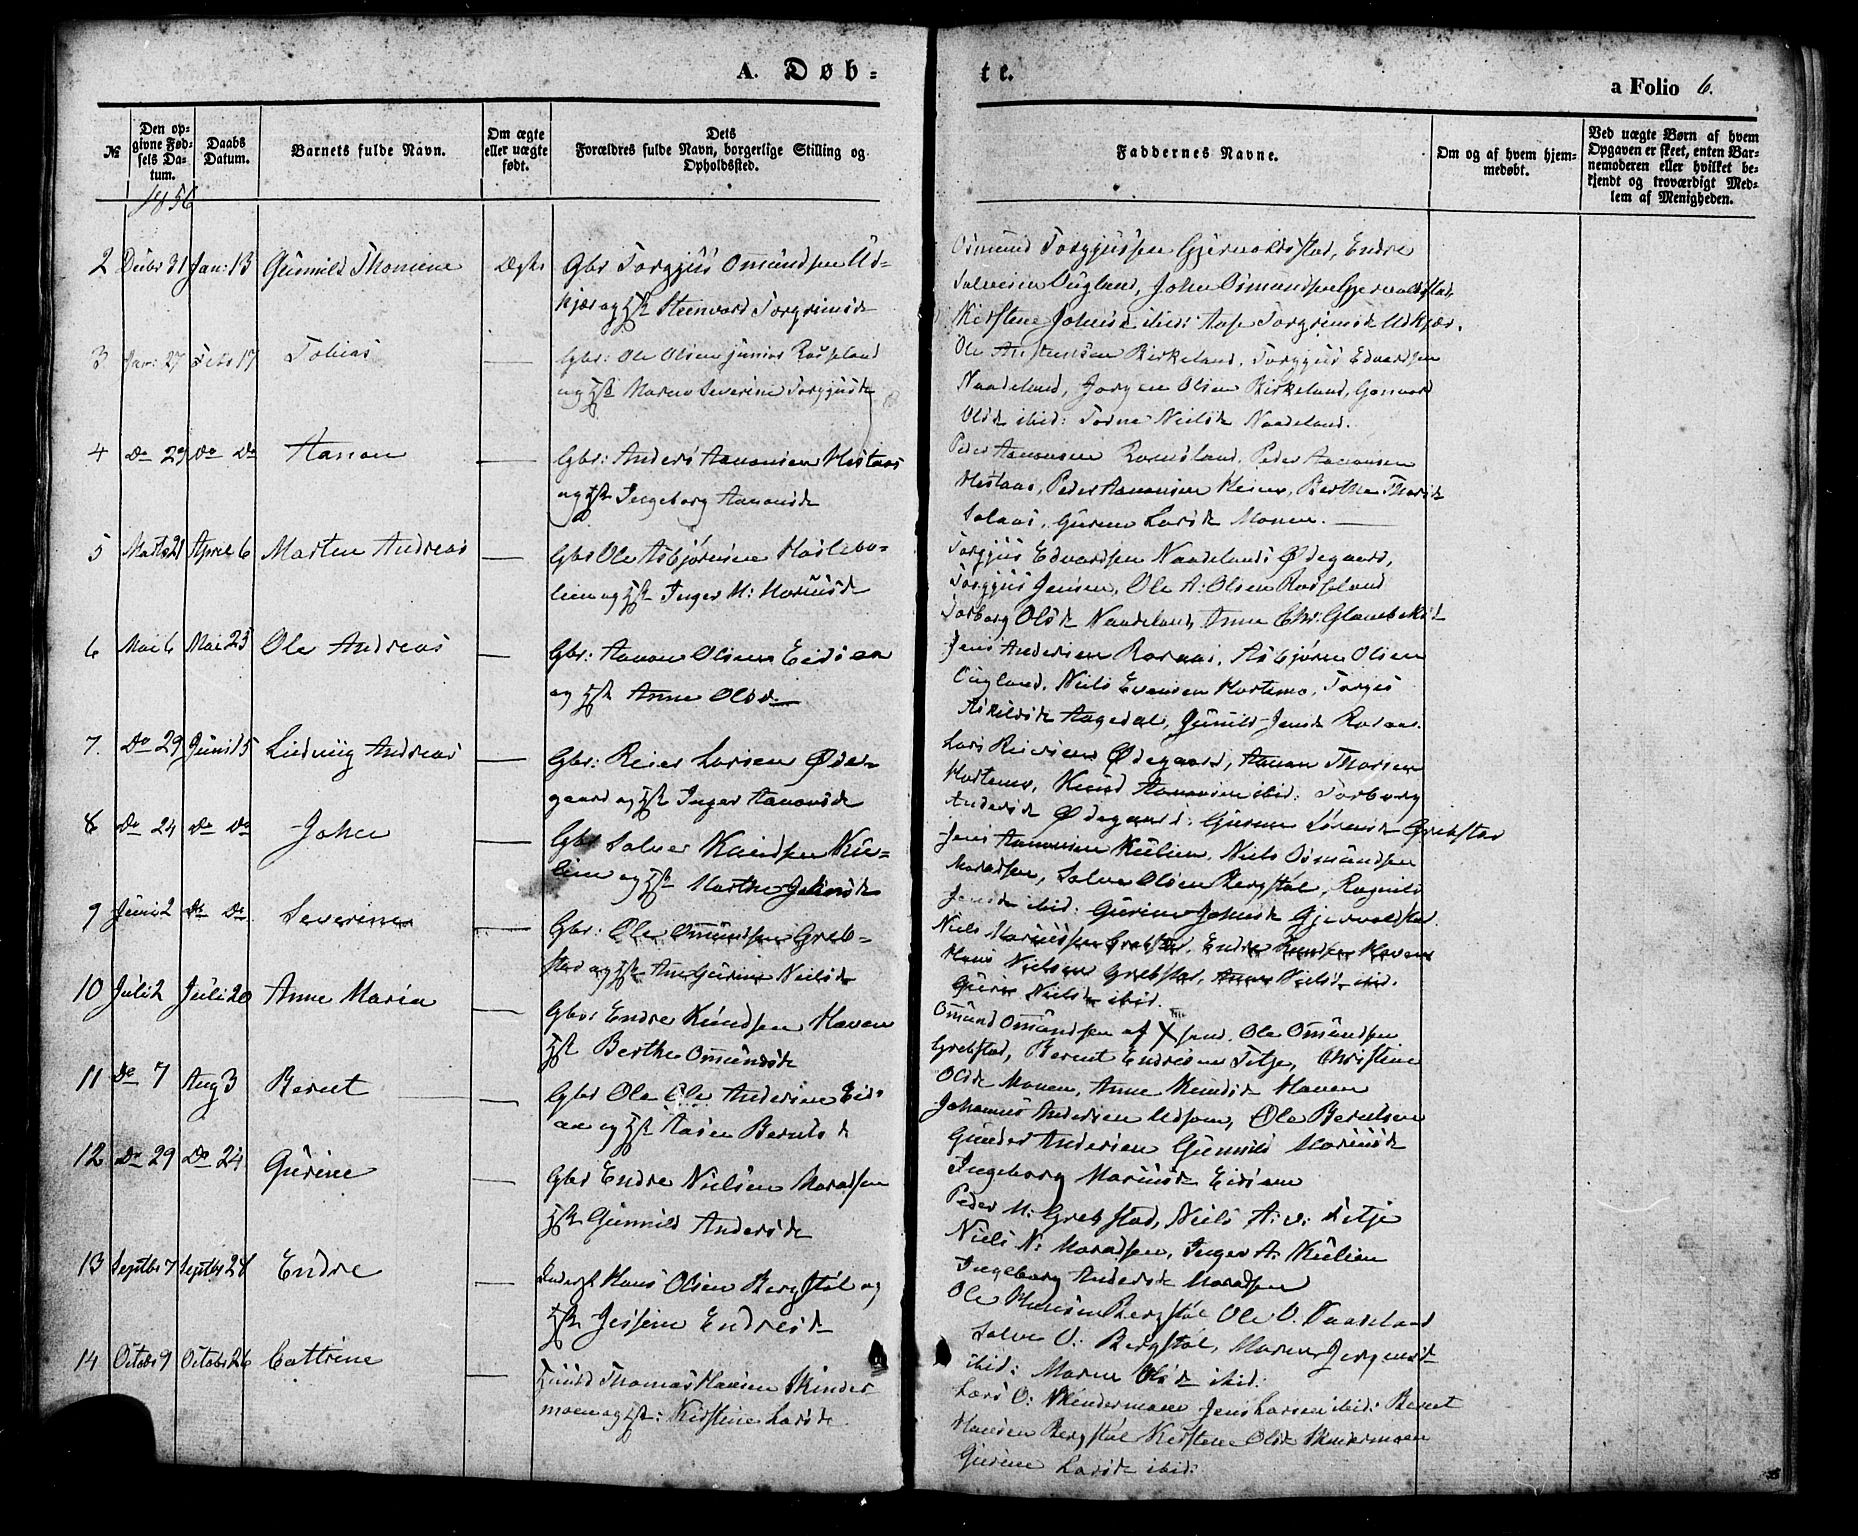 A. Døb-
te.
a Folio 6.
№
Den op-
givne Fød-
sels Da-
tum.
Daabs
Datum.
Barnets fulde Navn.
Om ægte
eller uægte
født.
Dets
Forældres fulde Navn, borgerlige Stilling og
Opholdssted.
Faddernes Navne.
Om og af hvem hjem-
medøbt.
Ved uægte Børn af hvem
Opgaven er skeet, enten Bar-
nemoderen eller hvilket be-
kjendt og troværdigt Med-
lem af Menigheden.
1856
2 Decbr 31 Jan: 13 Gunnild Thomine Ægte Gbr Torgjus Omundsen Ud-
kjær og Hst Steenvord Torgrimsdt
Osmund Torgjussen Gjervoldstad, Endre
Salvesen Ougland, John Osmundsen Gjervoldstad,
Kirstine Johnsd ibid: Aase Torgrimsdt Udkjær.
3 Jan: 27 Febr 17 Tobias — Gbr: Ole Olsen junior Rosseland
og Hst Maren Severine Torgjusdt
Ole Birkeland, Torgjus Edvardsen
Naadeland, Jørgen Olsen Birkeland, Gonvor
Olsdt ibid: Torine Nielsdt Naadeland.
4 Do 29 Do Do Aanon — Gbr: Anders Aanonsen Hestaas
og Hst Ingeborg Aanonsdt
Peder Aanonsen Romsland, Peder Aanonsen
Hestaas, Peder Aanonsen Heien, Berthe Thorsdt
Solaas, Gurine Larsdt Monen. —
5 Marts 21 April 6 Morten Andreas — Gbr Ole Asbjørnsen Haslebo-
leien og Hst Inger M: Mariusdt
Torgjus Edvardsen Naadelands Ødegaard,
Torgjus Jensen, Ole A: Olsen Rosseland
Torborg Olsdt Naadeland, Anne Chr:
6 Mai 6 Mai 25 Ole Andreas — Gbr: Aanon Olsen Eidsaa
og Hst Anne Olsdt
Jens Andersen Roraas, Asbjørn Olsen
Ougland, Niels Evensen Hortemo, Torgus
Askildsdt Aagedal, Gunild Jensdt Roraas.
7. Do 29 Juni 15 Ludvig Andreas — Gbr: Reier Larsen Øde-
gaard og Hst Inger Aanonsdt
Lars Reiersen Ødegaard, Aanon Thorsen
Hortemo, Knud Aanonsen ibid: Torborg
Andersdt Ødegaard: Gurine Grebstad
8 Do 24 Do Do John — Gbr Salve Knudsen Ku-
lien og Hst Marthe Johnsdt
Jens Aanonsen Kulien, Niels Osmundsen
Salve Olsen Bergstøl, Ragnild
Jensdt ibid: Gurine Johnsdt Gjervoldstad
9 Juni 2 Do Do Severine — Gbr: Ole Omundsen Greb-
stad og Hst Ane Gurine Nielsdt
Niels Mariussen Grebstad, Endre Knudsen Haven
Hans Nielsen Grebstad, Anne Nielsdt ibid.
Gurine Nielsdt ibid.
10 Juli 2 Juli 20 Anne Maria — Gbr Endre Knudsen Haven
Hst Berthe Omundsdt
Omund Omundsen Ole Omundsen
Grebstad, Berent Endresen Titje, Christine
Olsdt Monen, Anne Knudsdt Haven
11 Do 7 Aug 3 Berent — Gbr Ole Ole Andersen Eids-
aa og Hst Aasen Berntsdt
Johannes Andersen Udsom, Ole Berntsen
Gunder Andersen Gunnild Mariusdt
Ingeborg Mariusdt Eidsaa
12 Do 29 Do 24 Gurine — Gbr Endre Nielsen
Hst Gunnild Andersdt
Peder M: Grebstad, Niels A: v: Titje
Niels N: Inger A: Kulien
Ingeborg Andersdt
13 Septbr 7 Septbr 28 Endre — Hans Olsen Bergstøl og
Hst Jessine Endresdt
Ole Hansen Bergstøl Ole O: Naadeland
Salve O: Bergstøl, Maren Jørgensdt
ibid: Maren Olsdt ibid:
14 Octobr 9 Octobr 26 Cattrine — Thomas Hansen Skinder-
moen og Hst: Kirstine Larsdt
Lars O: Skindermoen Jens Larsen ibid: Berent
Hansen Bergstøl Kirstine Olsdt Skindermoen
Gurine Larsdt ibid: